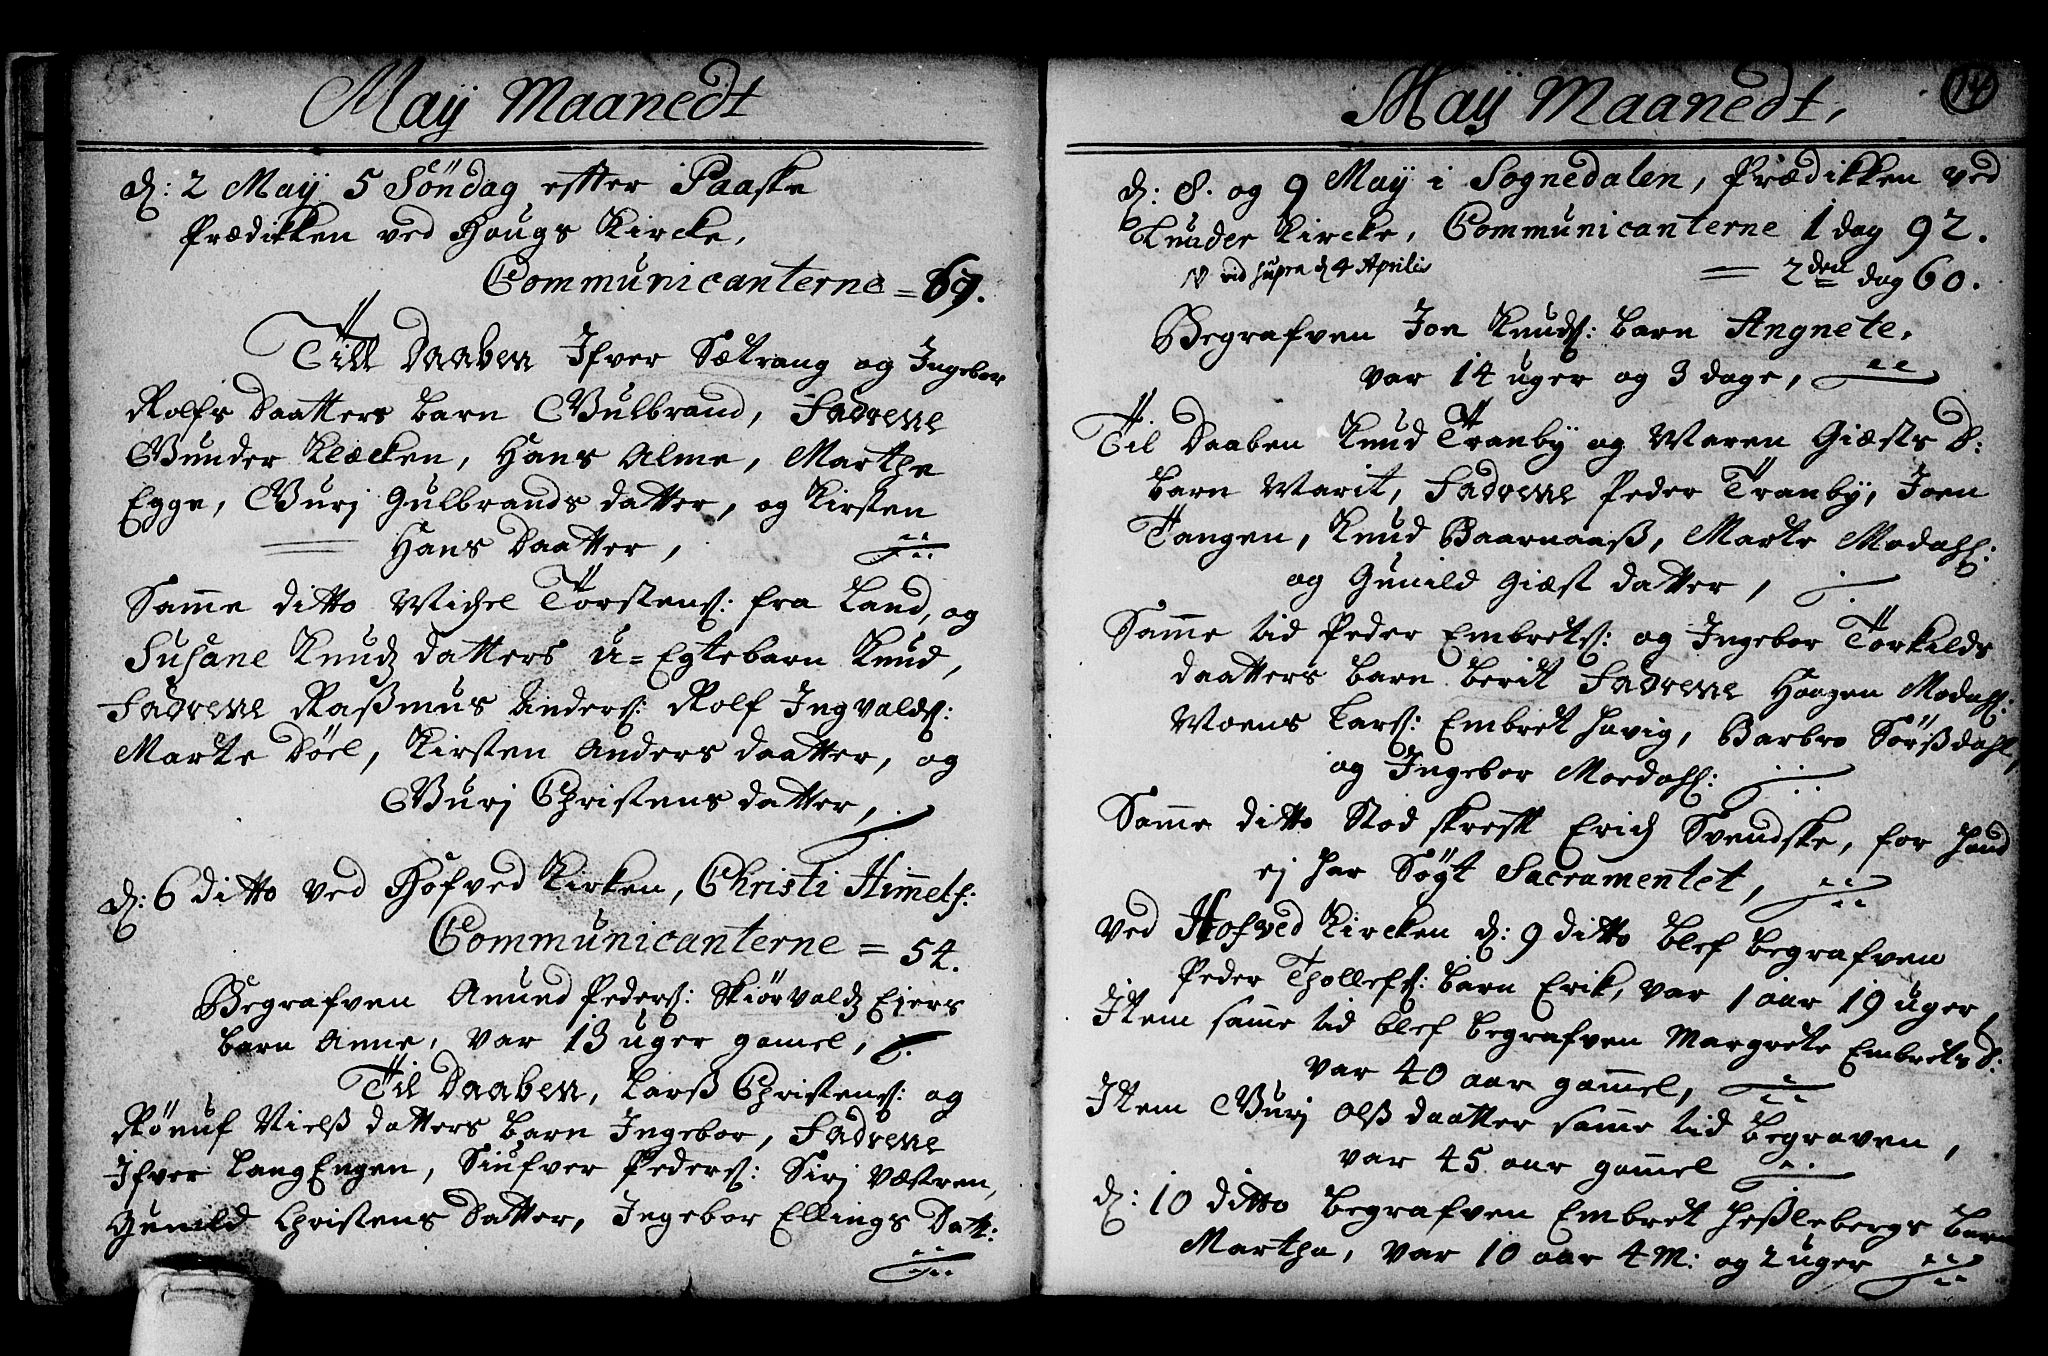 Maÿ Maanedt
d: 2 Maÿ 5 Söndag effter Paaske
Prædikken ved Hougs Kircke,
Communicanterne = 67.
Till Daaben Ifver Sætrang og Ingebor
Rolfs Daatters barn Gulbrand, Fadrene
Gunder Klæcken, Hans Alme, Marthe
Egge, Gurj Gulbrands datter, og Kirsten
Hans Daatter,
Samme ditto Michel Torstens: fra Land, og
Susane Knudz datters U=Egtebarn Knud,
Fadrene Rasmus Anders: Rolf Ingvalds:
Marte Döel, Kirsten Anders daatter, og
Gurj Christens datter,
d: 6 ditto ved Hofved Kirken, Christi Himmelf:
Communicanterne = 54.
Begrafven Amund Peders: Skiørvoldz Ejers
barn Anne, var 13 uger gamel,
Til Daaben, Larß Christens: og
Rönuf Nielß datters barn Ingebor, Fadrene
Ifver Lang Engen, Siufver Peders: Sirj Væstren,
Gunild Christens Datter, Ingebor Ellings Datt:
Maÿ Maanedt,
14
d: 8. og 9 Maÿ i Sognedalen, Prædikken ved
Lunder Kircke, Communicanterne 1 dag 92.
N vid supra d 4 Aprilis
= 2den dag 60.
Begrafven Jon Knuds: barn Angnete,
var 14 uger og 3 dage,
Til Daaben Knud Tranbÿ og Maren Giæsts D:
barn Marit, Fadrene Peder Tranbÿ, Joen
Tangen, Knud Baarnaaß, Marte Modahl:
og Gunild Giæst datter,
Samme tid Peder Embrets: og Ingebor Torkilds
daatters barn Berit Fadrene Haagen Modahl:
Moens Lars: Embret Havig, Barbro Sörßdahl,
og Ingebor Moedahl:
Samme ditto Stod skrift Erich Svendske, for hand
ej har Sögt Sacramentet,
ved Hofved Kircken d: 9 ditto blef begrafven
Peder Thollefs: barn Erik, var 1 aar 19 uger,
Item samme tid blef begrafven Margrete Embrets D:
var 40 aar gammel,
Item Gurj Olß daatter samme tid begraven,
var 45 aar gammel
d: 10 ditto begrafven Embret Heßlebergs barn
Martha, var 10 aar 4 M: og 2 uger